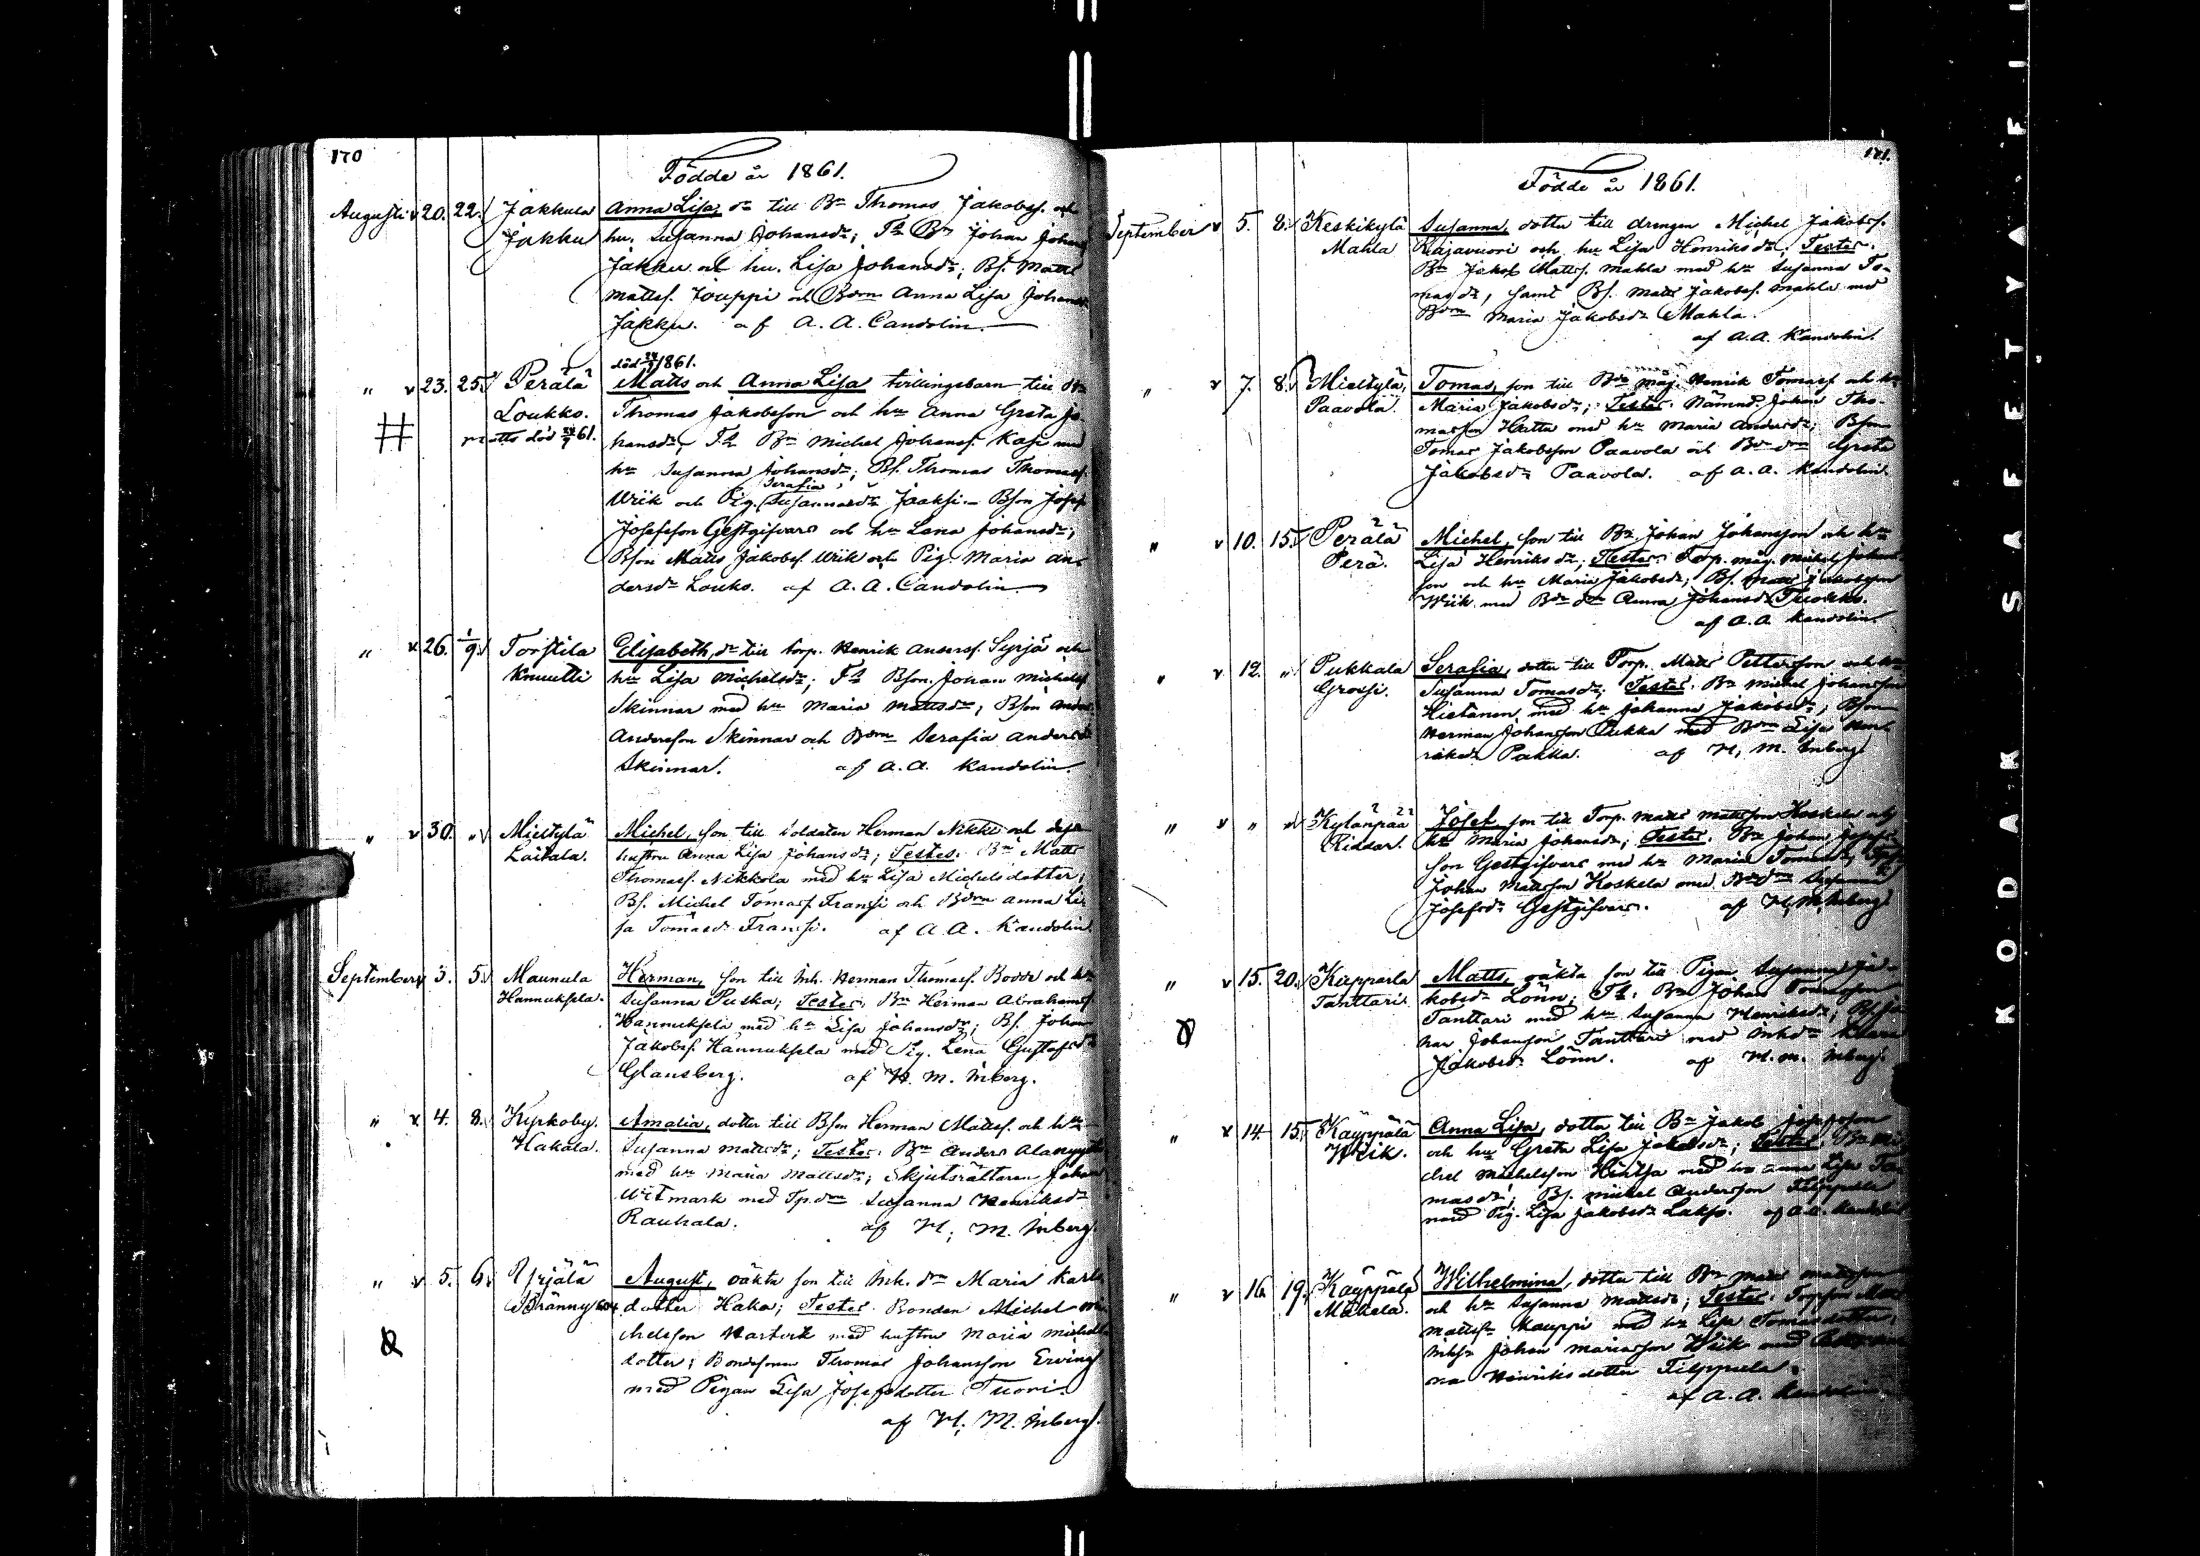 170
Födde år 1861.
Augusti v 20. 22. Jakkula Anna Lisa, dr till Bn Thomas Jakobss. och
Jakku hu. Susanna Johansdr; Th Bn Johan Johans
Jakku och hu. Lisa Johansdr; Bs. Matts
Mattss. Jouppi och Bdrn Anna Lisa Johansdr
Jakku. af A. A. Candolin.
död 24/9 1861.
" v 23. 25. Perälä Matts och Anna Lisa tvillingsbarn till Bn
Loukko. Thomas Jakobsson och hu Anna Greta Jo-
# Matts död 24/9 61. hansdr, Th Bn Michel Johanss. Kasi med
hu Susanna Johansdr; Bs. Thomas Thomass.
Serafia
Wiik och Pig. Susannasdr Jaaksi. – Bson Josef
Josefsson Gestgifvars och hu Lena Johansdr;
Bson Matts Jakobss. Wiik och Pig. Maria An-
dersdr Louko. af A. A. Candolin.
" v 26. 1/9 Torstila Elisabeth, dr till torp. Henrik Anderss. Syrjä och
Knuutti hu Lisa Michelsdr; Th Bson. Johan Michelss.
Skinnar med hu Maria Mattsdr; Bson Anders
Andersson Skinnar och Bdrn Serafia Andersdr
Skinnar. af A. A. Kandolin.
" v 30. " Mieltylä Michel, son till soldaten Herman Nikki och dess
Laitala. hustru Anna Lisa Johansdr; Testes. Bn Matts
Thomass. Nikkola med hu Lisa Michelsdotter;
Bs. Michel Tomass Fransi och Bdrn Anna Li-
sa Tomasdr Fransi. af A. A. Kandolin.
September v 3. 5. Maunula Herman, son till Inh. Herman Thomass. Bodde och hu
Hannuksela. Susanna Puska; Testes. Bn Herman Abrahamss.
Hannuksela med hu Lisa Johansdr; Bs. Johan
Jakobss. Hannuksela med Pig. Lena Gustafsdr
Glansberg. af H. M. Inberg.
" v 4. 8. Kyrkoby. Amalia, dotter till Bson Herman Mattss. och hu
Hakala. Susanna Mattsdr; Testes. Bn Anders
med hu Maria Mattsdr; Skjutsrättaren Johan
Witmark med Tp.drn Susanna Henriksdr
Rauhala. af H. M. Inberg.
" v 5. 6. Yrjälä August, oäkta son till Inh. drn Maria Karls
dotter Haka; Testes. Bonden Michel Mi-
chelsson Hartvik med hustru Maria Michels
dotter; Bondesonen Thomas Johansson Erving
med Pigan Lisa Josefsdotter Tuori.
af H. M. Inberg.
171.
Födde år 1861.
September v 5. 8. Keskikylä Susanna, dotter till drengen Michel Jakobss.
Mahla Rajavuori och hu Lisa Henriksdr. Testes.
Bn Jakob Mattss. Mahla med hu Susanna To-
masdr, samt Bs. Matts Jakobss. Mahla med
Bdrn Maria Jakobsdr Mahla.
af A. A. Kandolin.
" v 7. 8. Mieltylä, Tomas, son till Bde måg. Henrik Tomass och hu
Paavola. Maria Jakobsdr; Testes. Nämnd. Johan Tho-
masson Hertta med hu Maria Andersdr; Bson
Tomas Jakobsson Paavola och Bdrn Greta
Jakobsdr Paavola. af A. A. Kandolin.
" v 10. 15. Perälä Michel, son till Bn Johan Johansson och hu
Perä. Lisa Henriksdr; Testes. Torp. måg. Michel Johans-
son och hu Maria Jakobsdr; Bs. Matts Jakobsson
Wiik med Bdrn Anna Johansdr
af A. A. Kandolin.
" v 12. " Pukkala Serafia, dotter till Torp. Matts Pettersson och hu
Grorsi. Susanna Tomasdr; Testes. Bn Michel Johansson
Hietanen med hu Johanna Jakobsdr; Bson
Herman Johansson Pukka med Bdrn Lisa Hen-
riksdr Pukka. af H. M. Inberg
" v " " Kylänpää Josef, son till Torp. Matts Mattsson Koskela och
Riddar. hu Maria Johansdr; Testes. Bn Johan Josefs-
son Gestgifvars med hu Maria Tomasdr;
Johan Mattsson Koskela med Bdrn Susanna
Josefsdr Gestgifvars. af H. M. Inberg.
" v 15. 20. Käpparla Matts, oäkta son till Pigan Susanna Ja-
Tanttari. kobsdr Lönn; Th: Bn Johan Tomasson
Tanttari med hu Susanna Henriksdr; Bs. Jo-
han Johansson Tanttari med
Jakobsdr Lönn. af H. M. Inberg.
" v 14. 15. Käyppälä Anna Lisa, dotter till Bn Jakob Josefsson
Wiik. och hu Greta Lisa Jakobsdr; Testes. Bn Mi-
chel Michelsson Hintsa med hu Anna Lisa To-
masdr; Bs. Michel Andersson Filppula
med Pig. Lisa Jakobsdr Lakso. af A. A. Kandolin
" v 16. 19. Käyppälä Wilhelmina, dotter till Bn Matts Mattsson
Mäkelä. och hu Susanna Mattsdr; Testes.
Mattss. Kauppi med hu Lisa Tomasdotter;
Johan Mariasson Wiik med
na Henriksdotter Filppula.
af A. A. Kandolin
KODAK SAFETY FIL